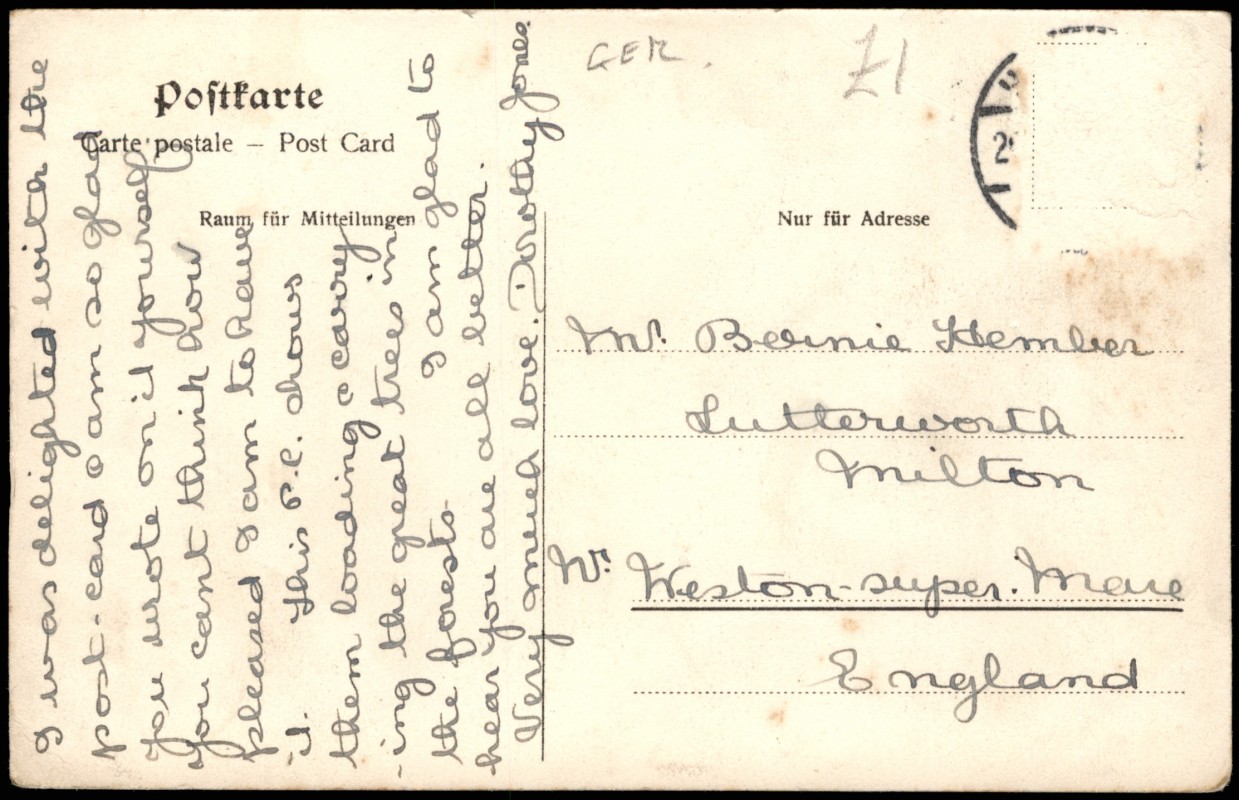 GER.
£1
Postkarte
Carte postale – Post Card
Raum für Mitteilungen
Nur für Adresse
2
I was delighted with the
post-card & am so glad
you wrote on it yourself
you cant think how
pleased I am to have
it. This P.C. shows
them loading & carry
-ing the great trees in
the forests. I am glad to
hear you are all better.
Very much love. Dorothy Jones.
Mr. Bernie Hember
Lutterworth
Milton
Nr. Weston-super-Mare
England